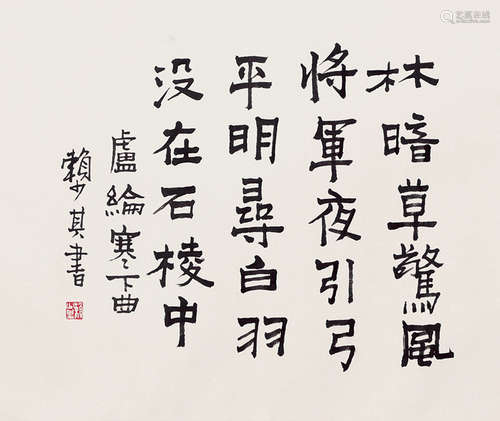 林暗草驚風
將軍夜引弓
平明尋白羽
没在石棱中
盧綸寒下曲
賴少其書